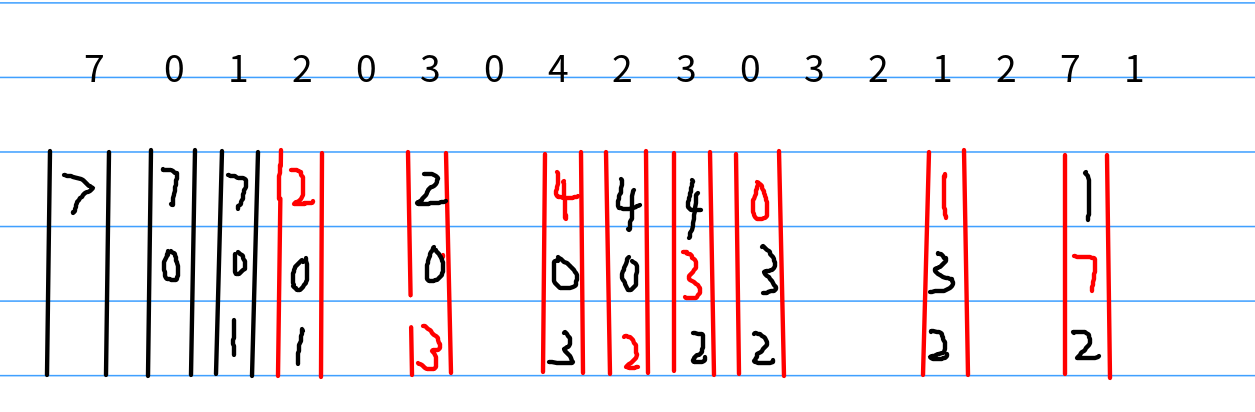 7 0 1 2 0 3 0 4 2 3 0 3 2 1 2 7 1
7 7 7 2 2 4 4 4 0 1 1
0 0 0 0 0 0 3 3 3 7
1 1 3 3 2 2 2 2 2